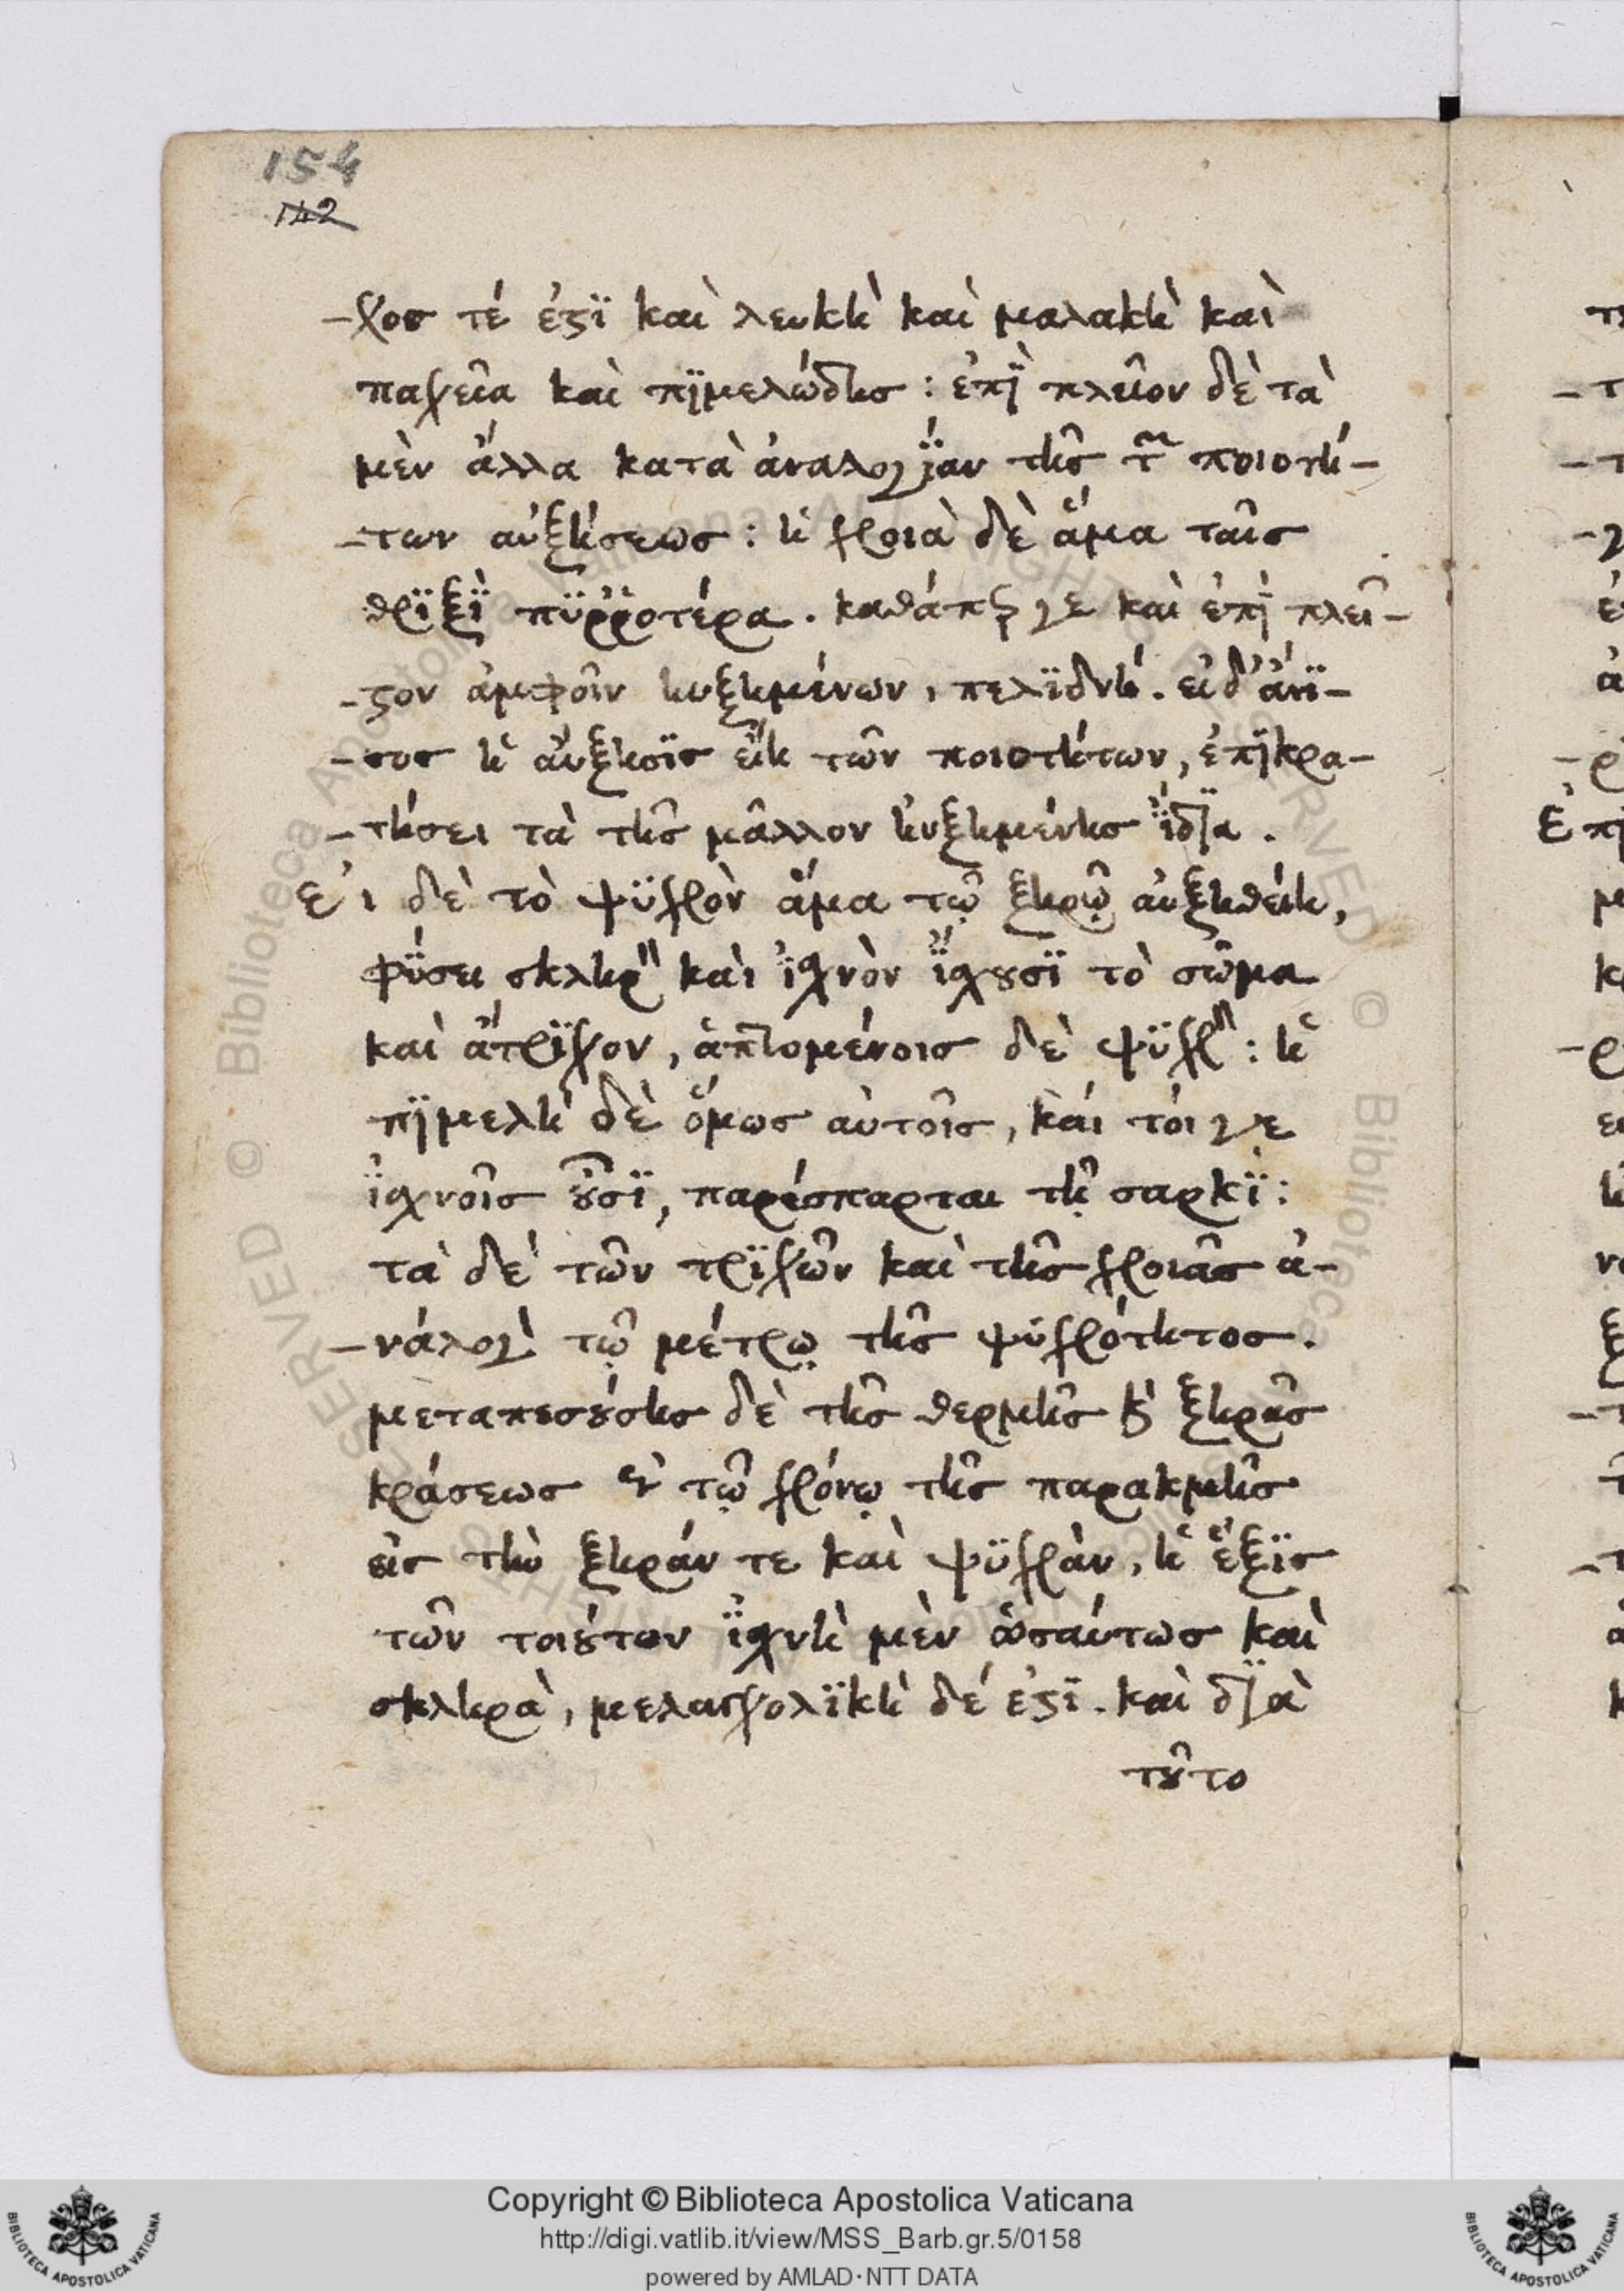 154
142
-χος τέ ἐϛϊ καὶ λευκὴ καὶ μαλακὴ καὶ
παχεῖα καὶ πϊμελώδης : ἐπῒ πλεῖον δὲ τὰ
μὲν ἄλλα κατὰ ἀναλογΐαν τῆς τ͂ ποιοτή-
-των αὐξήσεως : ἡ χροιὰ δὲ ἅμα ταῖς
θρϊξῒ πϋῤῥοτέρα. καθάπερ γε καὶ ἐπῒ πλεῖ-
-ϛον ἀμφοῖν ηυξημένων, πελϊδνή. εἰ δ' ἄνϊ-
-σος ἡ ἄυξησϊς εἴη τῶν ποιοτήτων, ἐπϊκρα-
-τήσει τὰ τῆς μᾶλλον ἠυξημένης ἴδϊα.
Ε'ι δὲ τὸ ψϋχρὸν ἅμα τῷ ξηρῷ αὐξηθείη,
φΰσει σκληρ" καὶ ἰχνὸν ἴχȣσϊ τὸ σῶμα
καὶ ἄτρϊχον, ἁπτομένοις δὲ ψϋχρ" : ἡ
πϊμελὴ δὲ ὅμως αὐτοῖς, καί τόι γε
ἰχνοῖς ȣ̓͂σϊ, παρέσπαρται τῇ σαρκϊ :
τὰ δὲ τῶν τρϊχῶν καὶ τῆς χροιᾶς ἀ-
-νάλογ̀ τῷ μέτρῳ τῆς ψϋχρότητος.
μεταπεσȣ́σης δὲ τῆς θερμῆς ϗ̀ ξηρᾶς
κράσεως ἐν τῷ χρόνῳ τῆς παρακμῆς
εἰς τὴν ξηράν τε καὶ ψϋχρὰν, ἡ ἕξϊς
τῶν τοιȣ́των ἰχνὴ μὲν ὡσαύτως καὶ
σκληρὰ, μελαγχολϊκὴ δέ ἐϛϊ. καὶ δϊὰ
τȣ͂το
Copyright © Biblioteca Apostolica Vaticana
http://digi.vatlib.it/view/MSS_Barb.gr.5/0158
powered by AMLAD·NTT DATA